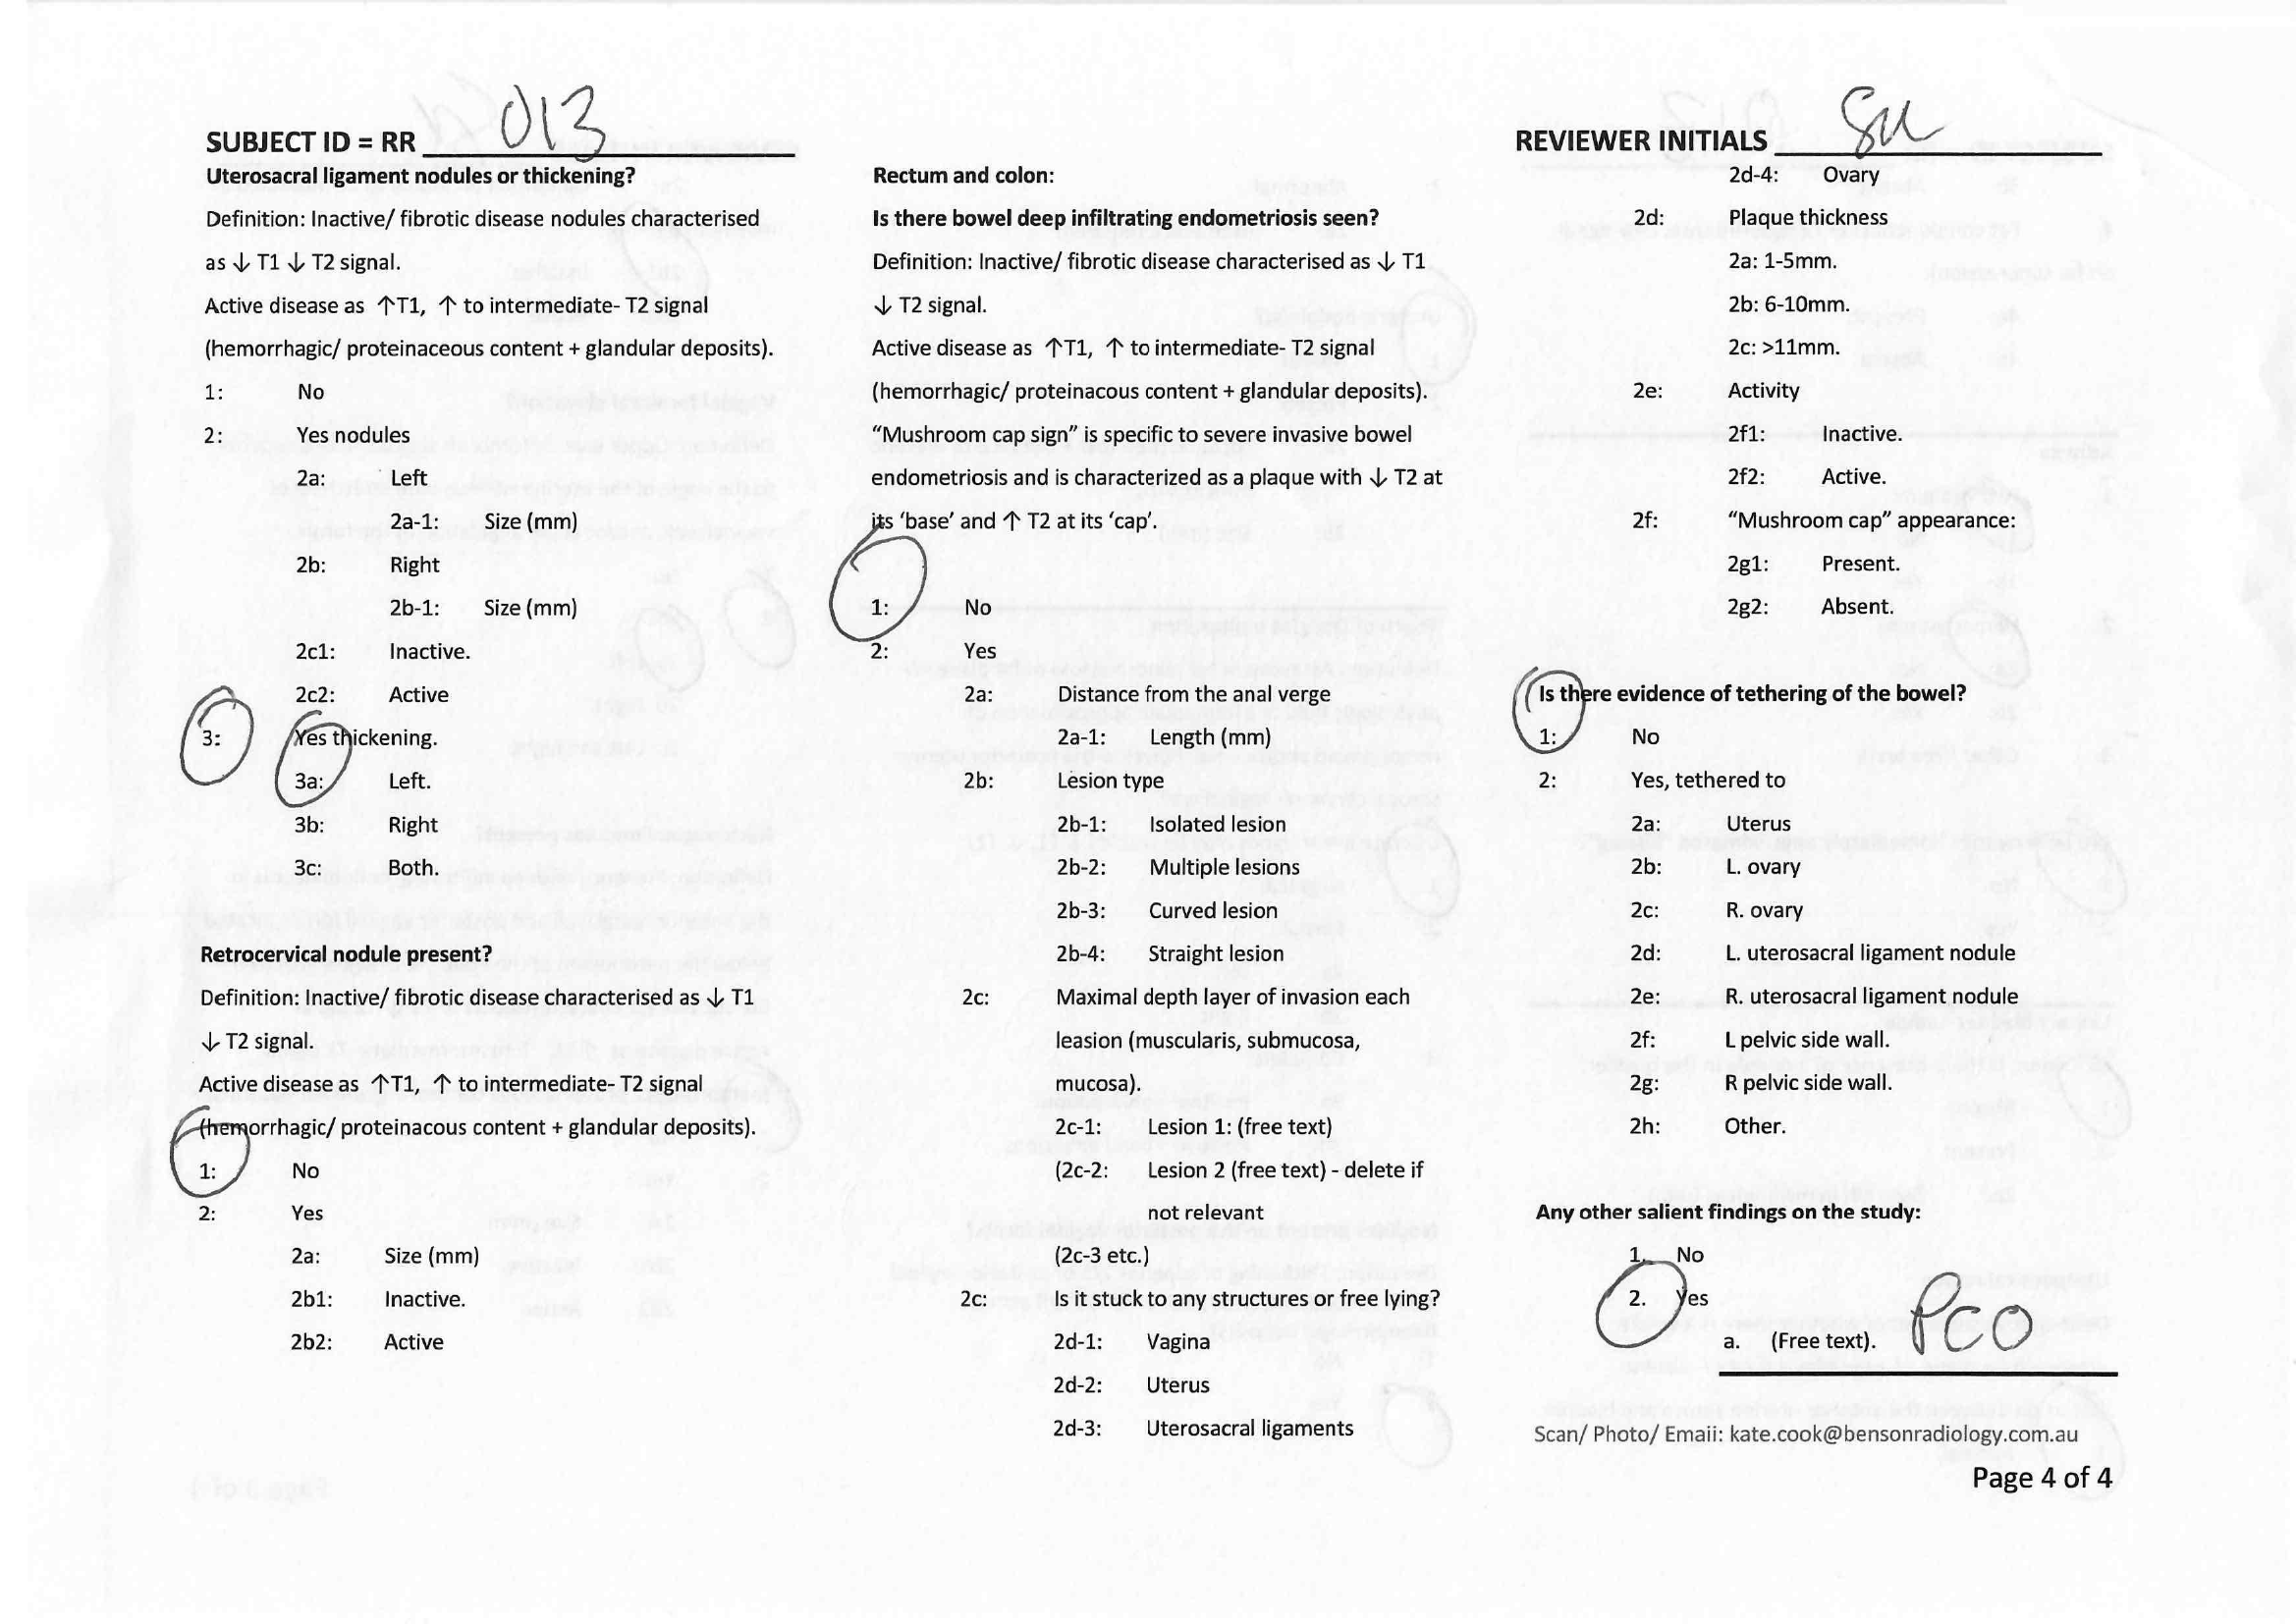 SUBJECT ID = RR 013
Uterosacral ligament nodules or thickening?
Definition: Inactive/ fibrotic disease nodules characterised
as ↓ T1 ↓ T2 signal.
Active disease as ↑T1, ↑ to intermediate- T2 signal
(hemorrhagic/ proteinaceous content + glandular deposits).
1: No
2: Yes nodules
2a: Left
2a-1: Size (mm)
2b: Right
2b-1: Size (mm)
2c1: Inactive.
2c2: Active
3: Yes thickening.
3a: Left.
3b: Right
3c: Both.
Retrocervical nodule present?
Definition: Inactive/ fibrotic disease characterised as ↓ T1
↓ T2 signal.
Active disease as ↑T1, ↑ to intermediate- T2 signal
(hemorrhagic/ proteinacous content + glandular deposits).
1: No
2: Yes
2a: Size (mm)
2b1: Inactive.
2b2: Active
Rectum and colon:
Is there bowel deep infiltrating endometriosis seen?
Definition: Inactive/ fibrotic disease characterised as ↓ T1
↓ T2 signal.
Active disease as ↑T1, ↑ to intermediate- T2 signal
(hemorrhagic/ proteinacous content + glandular deposits).
“Mushroom cap sign” is specific to severe invasive bowel
endometriosis and is characterized as a plaque with ↓ T2 at
its ‘base’ and ↑ T2 at its ‘cap’.
1: No
2: Yes
2a: Distance from the anal verge
2a-1: Length (mm)
2b: Lesion type
2b-1: Isolated lesion
2b-2: Multiple lesions
2b-3: Curved lesion
2b-4: Straight lesion
2c: Maximal depth layer of invasion each
leasion (muscularis, submucosa,
mucosa).
2c-1: Lesion 1: (free text)
(2c-2: Lesion 2 (free text) - delete if
not relevant
(2c-3 etc.)
2c: Is it stuck to any structures or free lying?
2d-1: Vagina
2d-2: Uterus
2d-3: Uterosacral ligaments
REVIEWER INITIALS SU
2d-4: Ovary
2d: Plaque thickness
2a: 1-5mm.
2b: 6-10mm.
2c: >11mm.
2e: Activity
2f1: Inactive.
2f2: Active.
2f: “Mushroom cap” appearance:
2g1: Present.
2g2: Absent.
Is there evidence of tethering of the bowel?
1: No
2: Yes, tethered to
2a: Uterus
2b: L. ovary
2c: R. ovary
2d: L. uterosacral ligament nodule
2e: R. uterosacral ligament nodule
2f: L pelvic side wall.
2g: R pelvic side wall.
2h: Other.
Any other salient findings on the study:
1. No
2. Yes
a. (Free text). PCO
Scan/ Photo/ Email: kate.cook@bensonradiology.com.au
Page 4 of 4